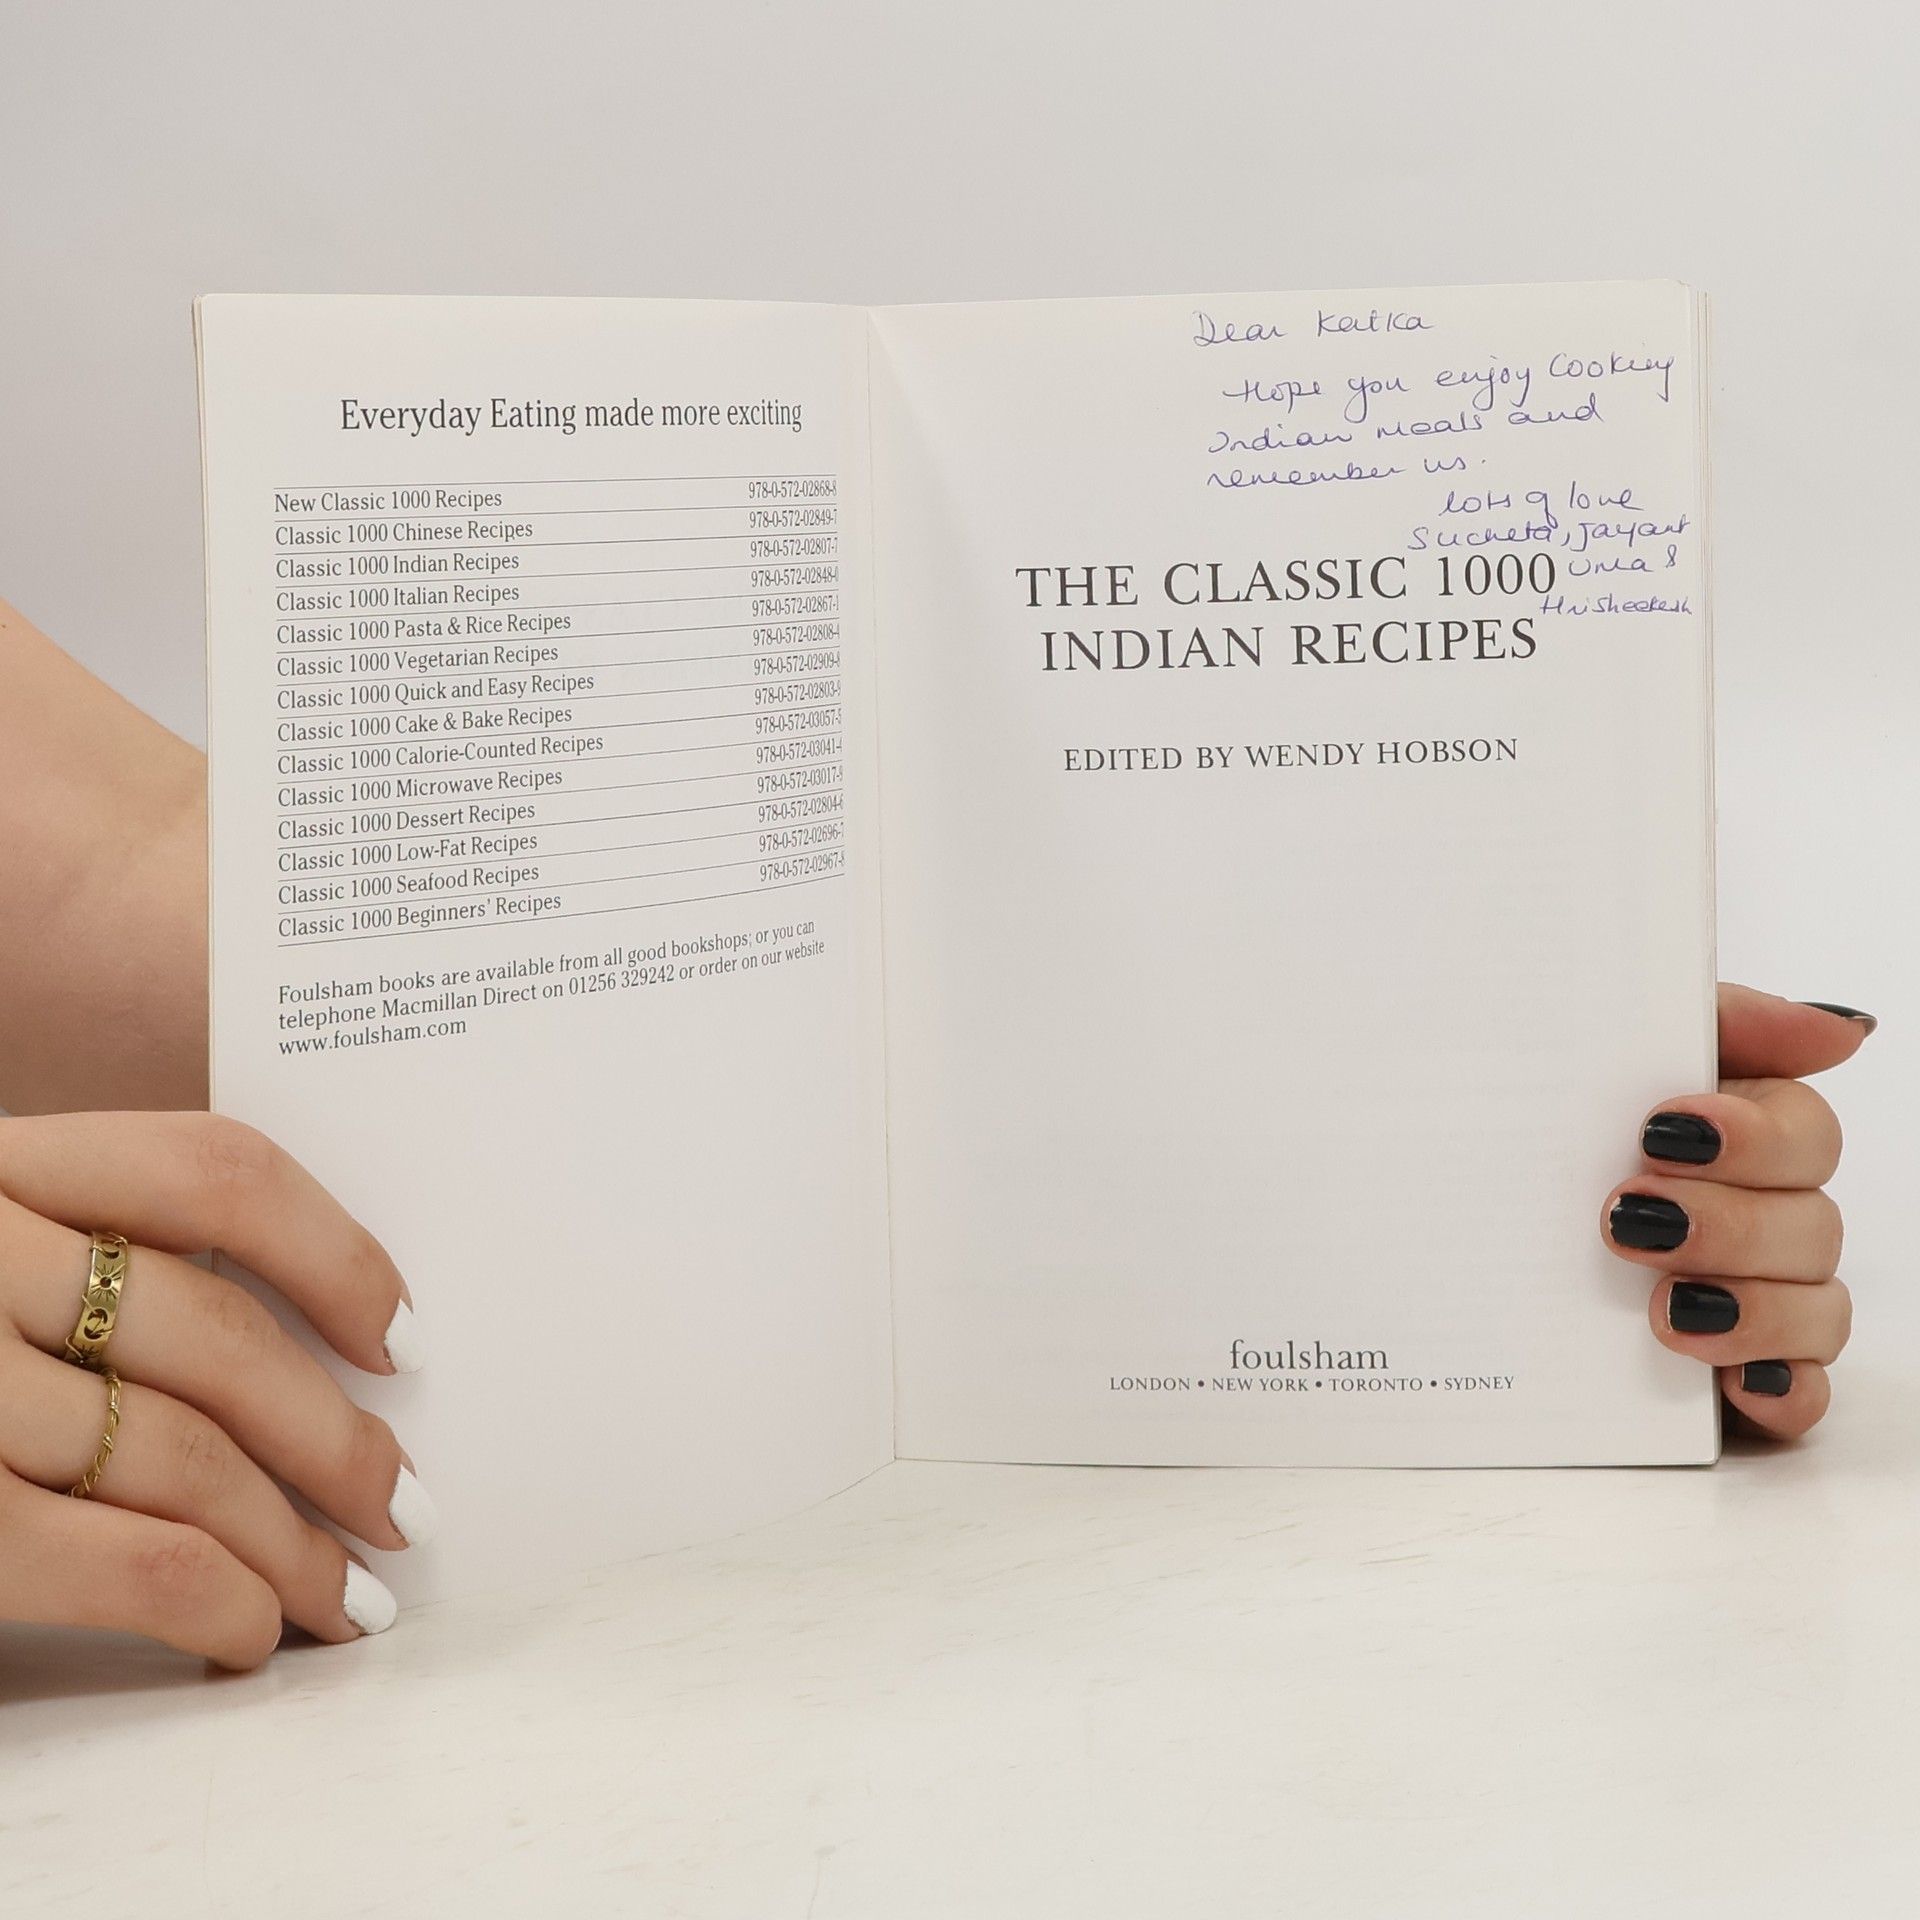 Everyday Eating made more exciting
New Classic 1000 Recipes 978-0-572-02868-8
Classic 1000 Chinese Recipes 978-0-572-02849-7
Classic 1000 Indian Recipes 978-0-572-02807-7
Classic 1000 Italian Recipes 978-0-572-02848-0
Classic 1000 Pasta & Rice Recipes 978-0-572-02867-1
Classic 1000 Vegetarian Recipes 978-0-572-02808-4
Classic 1000 Quick and Easy Recipes 978-0-572-02909-8
Classic 1000 Cake & Bake Recipes 978-0-572-02803-9
Classic 1000 Calorie-Counted Recipes 978-0-572-03057-5
Classic 1000 Microwave Recipes 978-0-572-03041-4
Classic 1000 Dessert Recipes 978-0-572-03017-9
Classic 1000 Low-Fat Recipes 978-0-572-02804-6
Classic 1000 Seafood Recipes 978-0-572-02696-7
Classic 1000 Beginners' Recipes 978-0-572-02967-8
Foulsham books are available from all good bookshops; or you can
telephone Macmillan Direct on 01256 329242 or order on our website
www.foulsham.com
Dear Katka
Hope you enjoy Cooking
Indian meals and
remember us.
lots of love
Sucheta, Jayant
Uma &
Hrisheekesh
THE CLASSIC 1000
INDIAN RECIPES
EDITED BY WENDY HOBSON
foulsham
LONDON • NEW YORK • TORONTO • SYDNEY